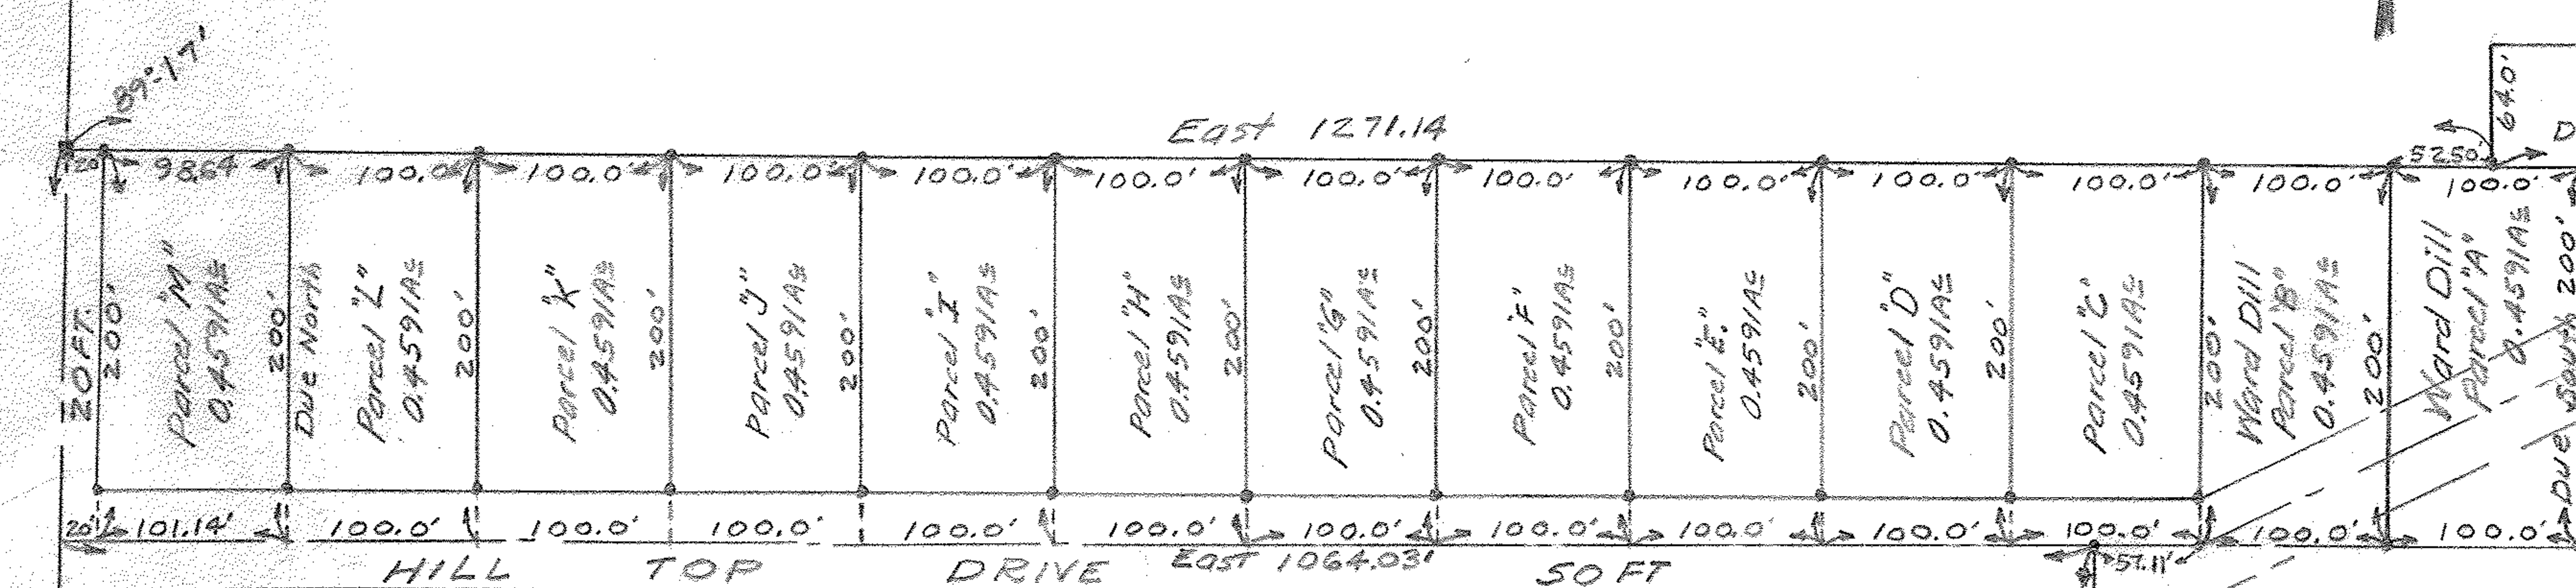 89°-17'
East 1271.14
640'
D
20' 98.64 100.0' 100.0' 100.0' 100.0' 100.0' 100.0' 100.0' 100.0' 100.0' 100.0' 100.0' 52.50' 100.0'
20FT.
200'
Parcel "M"
0.4591Ac
200'
Due North
Parcel "L"
0.4591Ac
200'
Parcel "K"
0.4591Ac
200'
Parcel "J"
0.4591Ac
200'
Parcel "I"
0.4591Ac
200'
Parcel "H"
0.4591Ac
200'
Parcel "G"
0.4591Ac
200'
Parcel "F"
0.4591Ac
200'
Parcel "E"
0.4591Ac
200'
Parcel "D"
0.4591Ac
200'
Parcel "C"
0.4591Ac
200'
Ward Dill
Parcel "B"
0.4591Ac
200'
Ward Dill
Parcel "A"
0.4591Ac
Due South 200'
20' 101.14' 100.0' 100.0' 100.0' 100.0' 100.0' 100.0' 100.0' 100.0' 100.0' 100.0' 100.0' 100.0'
East 1064.03' 57.11'
HILL TOP DRIVE 50 FT